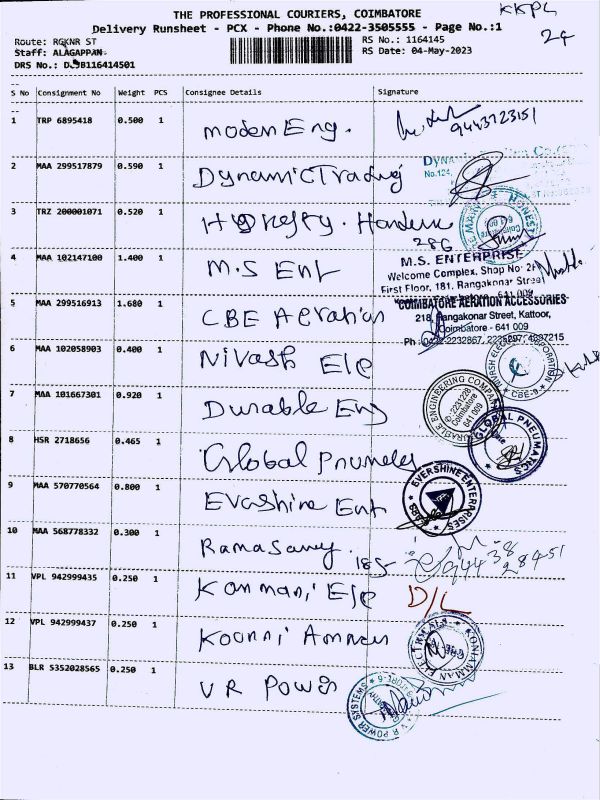 THE PROFESSIONAL COURIERS, COIMBATORE
KKPL
Delivery Runsheet - PCX - Phone No.:0422-3505555 - Page No.:1
24
Route: RGKNR ST
RS No.: 1164145
Staff: ALAGAPPAN
RS Date: 04-May-2023
DRS No.:
S No Consignment No Weight PCS Consignee Details Signature
1 TRP 6895418 0.500 1 Modern Eng. 9443723151
2 MAA 299517879 0.590 1 Dynamic Trading No.124,
3 TRZ 200001071 0.520 1
286
4 MAA 102147100 1.400 1 M.S Ent M.S. ENTERPRISE
Welcome Complex, Shop No:
First Floor, 181, Rangakonar Street
641 009
5 MAA 299516913 1.680 1 CBE Aeration COIMBATORE AERATION ACCESSORIES
218, Rangakonar Street, Kattoor,
Coimbatore - 641 009
6 MAA 102058903 0.400 1 Nivash Ele
7 MAA 101667301 0.920 1 Durable Eng ENGINEERING COMPANY
Coimbatore 641 009
8 HSR 2718656 0.465 1 Global GLOBAL PNEUMATICS
9 MAA 570770564 0.800 1 Ent EVERSHINE ENTERPRISES
10 MAA 568778332 0.300 1 Ramasamy. 185
11 VPL 942999435 0.250 1 Kanmani Ele D/L
12 VPL 942999437 0.250 1 Amman
13 BLR 5352028565 0.250 1 VR Power VR POWER SYSTEMS